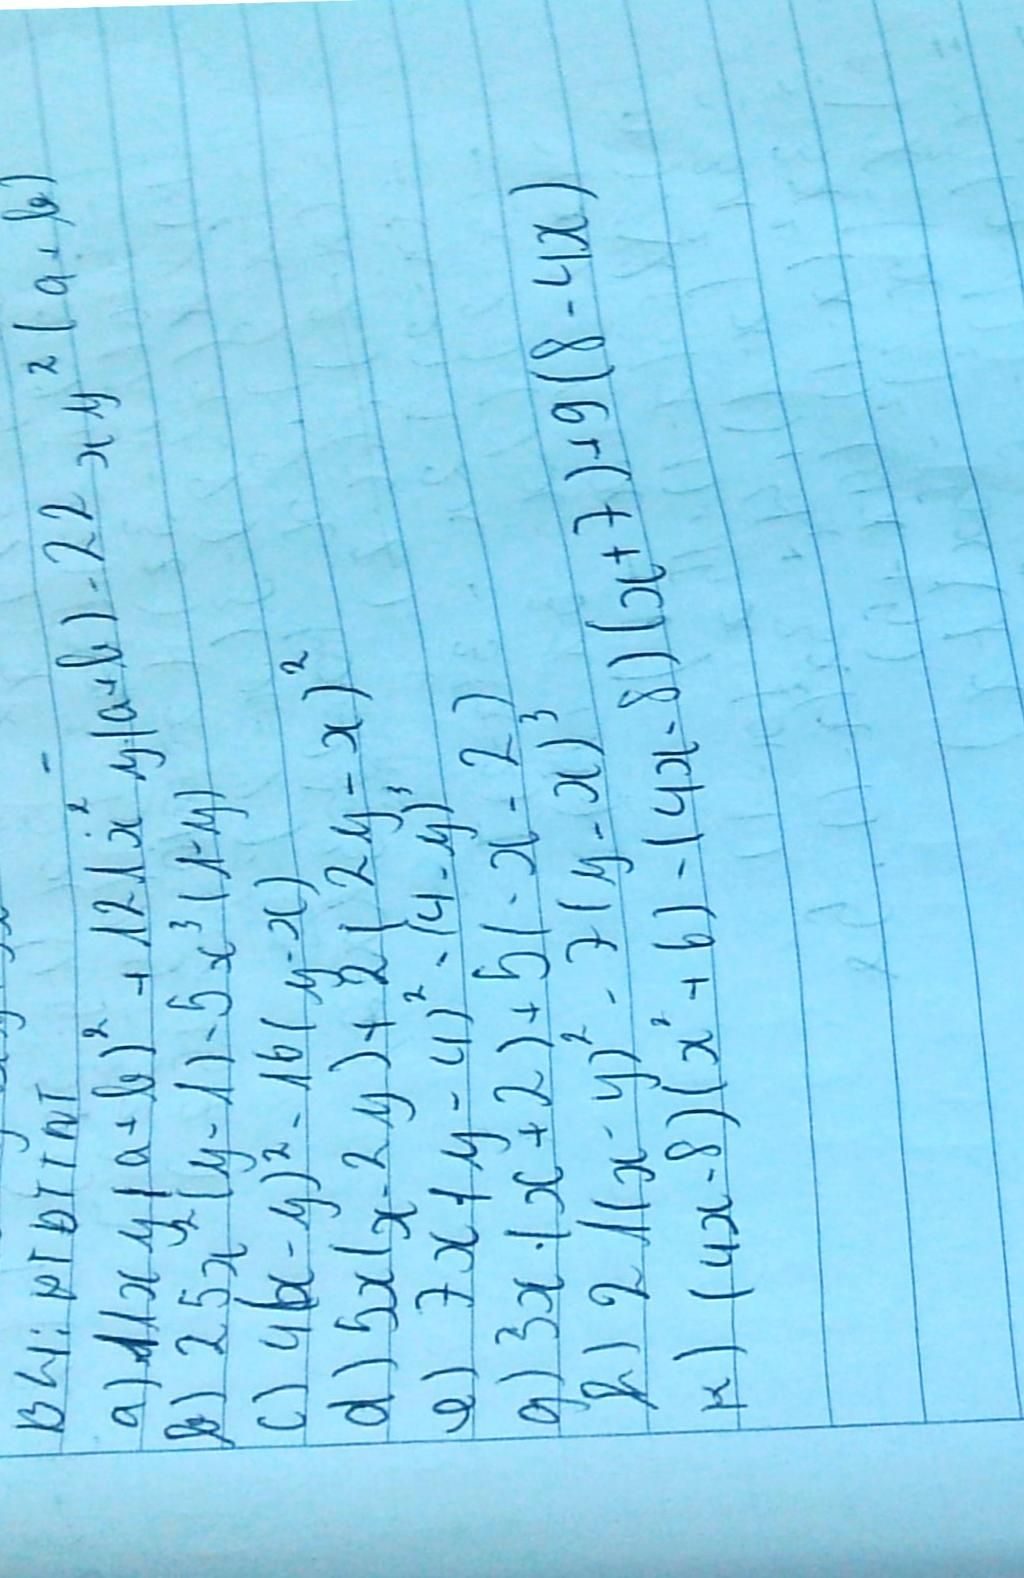 B4: PTĐTTNT
a) 11xy(a+b)² + 121x²y(a+b) - 22xy²(a+b)
b) 25x²(y-1) - 5x³(1-y)
c) 4(x-y)² - 16(y-x)
d) 5x(x-2y) + 2(2y-x)²
e) 7x(y-4)² - (4-y)³
g) 3x.(x+2) + 5(-x-2)
h) 21(x-y)² - 7(y-x)³
k) (4x-8)(x²+6) - (4x-8)(x+7) + 9(8-4x)